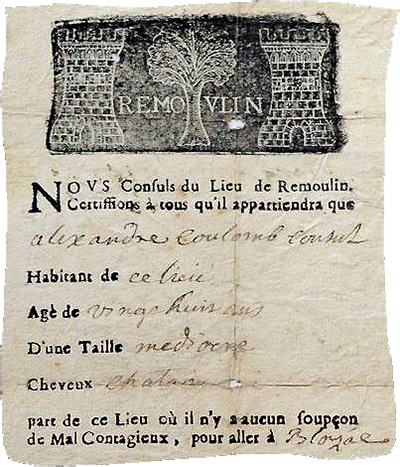 REMOULIN
NOVS Consuls du Lieu de Remoulin.
Certiffions à tous qu'il appartiendra que
alexandre Coulomb Consul
Habitant de ce lieu
Agé de vingt huit ans
D'une Taille mediocre
Cheveux
part de ce Lieu où il n'y a aucun soupçon
de Mal Contagieux, pour aller à